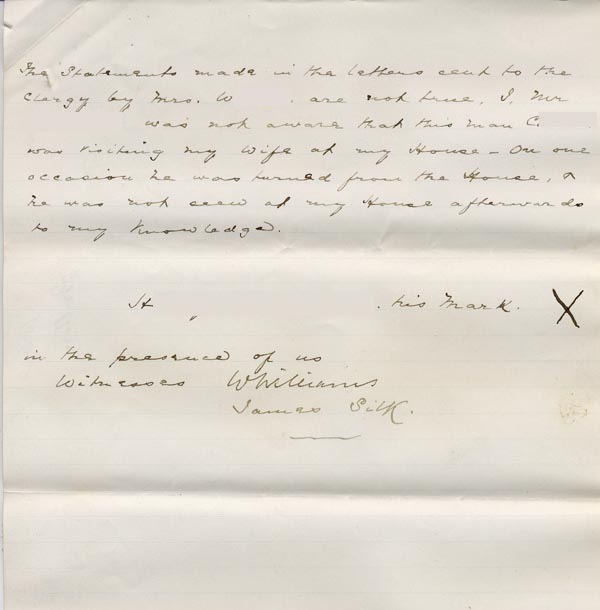 The Statements made in the letters sent to the
Clergy by Mrs. W are not true, I, Mr
was not aware that this man C.
was visiting my Wife at my House - On one
occasion he was turned from the House, &
he was not seen at my House afterwards
to my Knowledge.
H his Mark. X
in the presence of us
Witnesses WWilliams
James Silk.